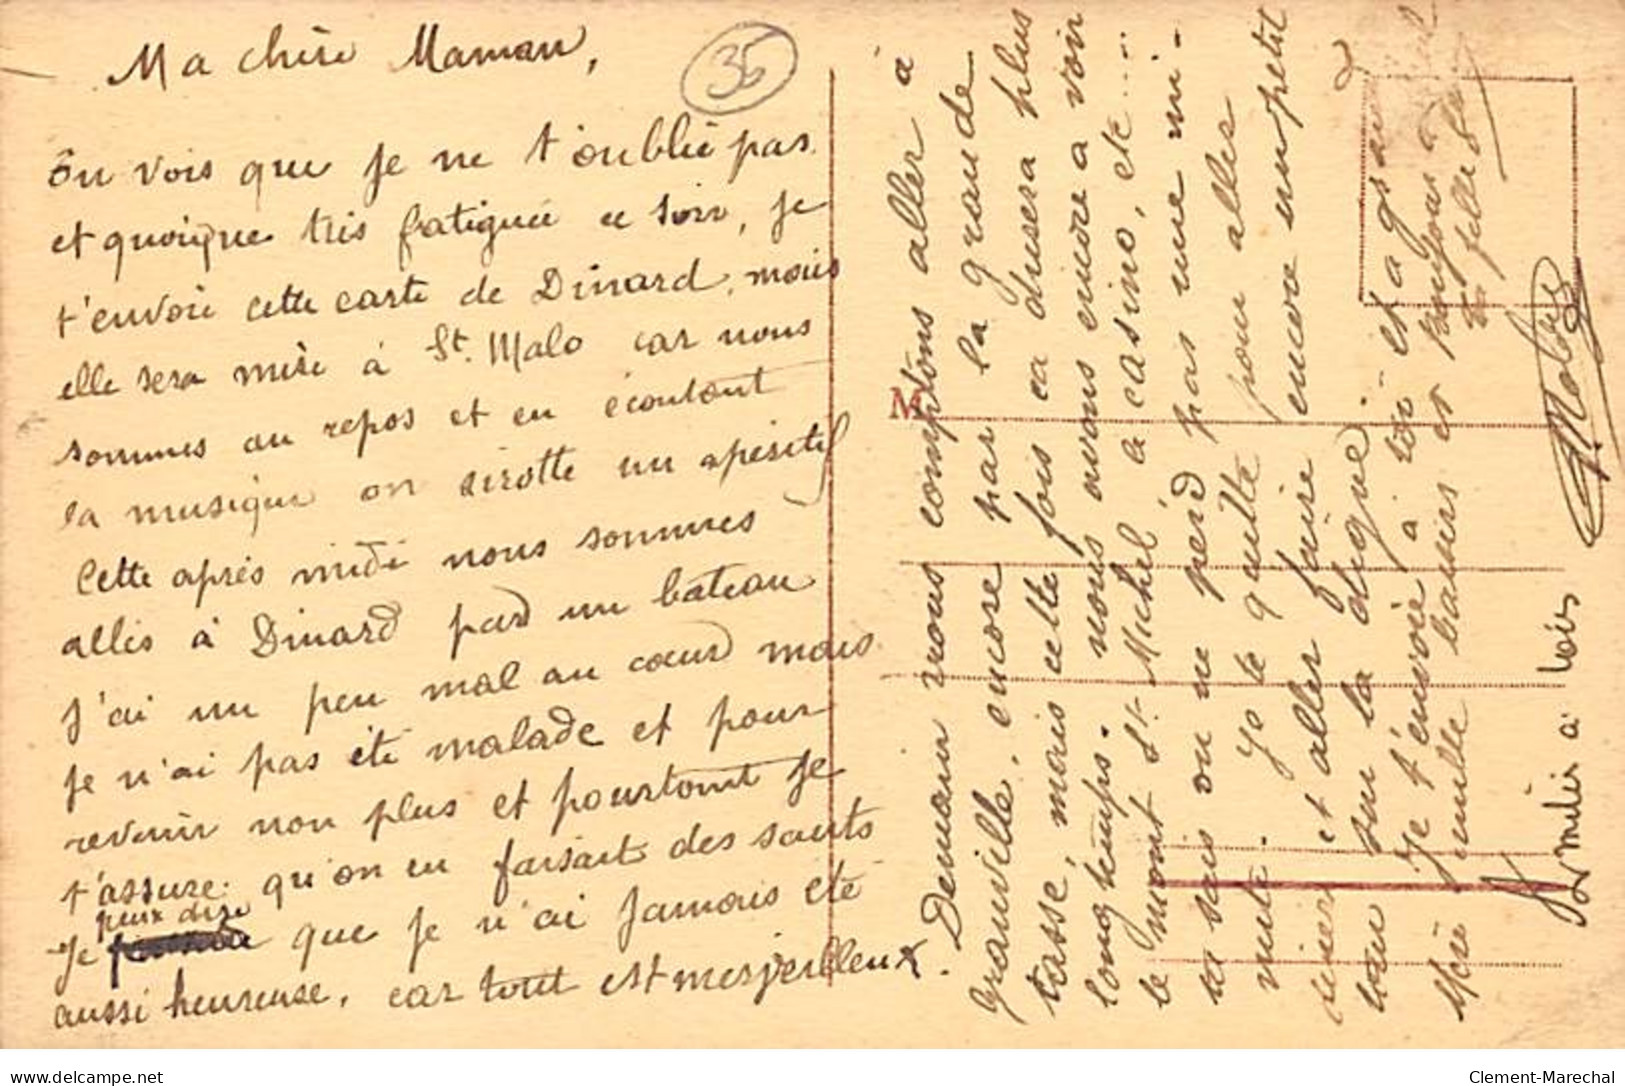 Ma chère Maman,
35
Tu vois que je ne t'oublie pas
et quoique très fatiguée ce soir, je
t'envoie cette carte de Dinard, mais
elle sera mise à St. Malo car nous
sommes au repos et en écoutant
la musique on sirotte un apéritif
Cette après midi nous sommes
allés à Dinard par un bateau
j'ai un peu mal au cœur mais
je n'ai pas été malade et pour
revenir non plus et pourtant je
t'assure qu'on en faisait des sauts
peux dire
Je que je n'ai jamais été
aussi heureuse, car tout est merveilleux.
M
Demain nous comptons aller à
Granville, encore par la grande
tasse, mais cette fois ca dusera plus
longtemps. nous avons encore a voir
le mont St Michel a casino, etc....
tu sais on ne perd pas une mi-
nute. Je te quitte pour aller
et aller faire encore un petit
tour sur la digue.
Je t'envoie a toi et a
Mère mille baisers et
ta fille
Amitiés à tois
Clement-Marechal